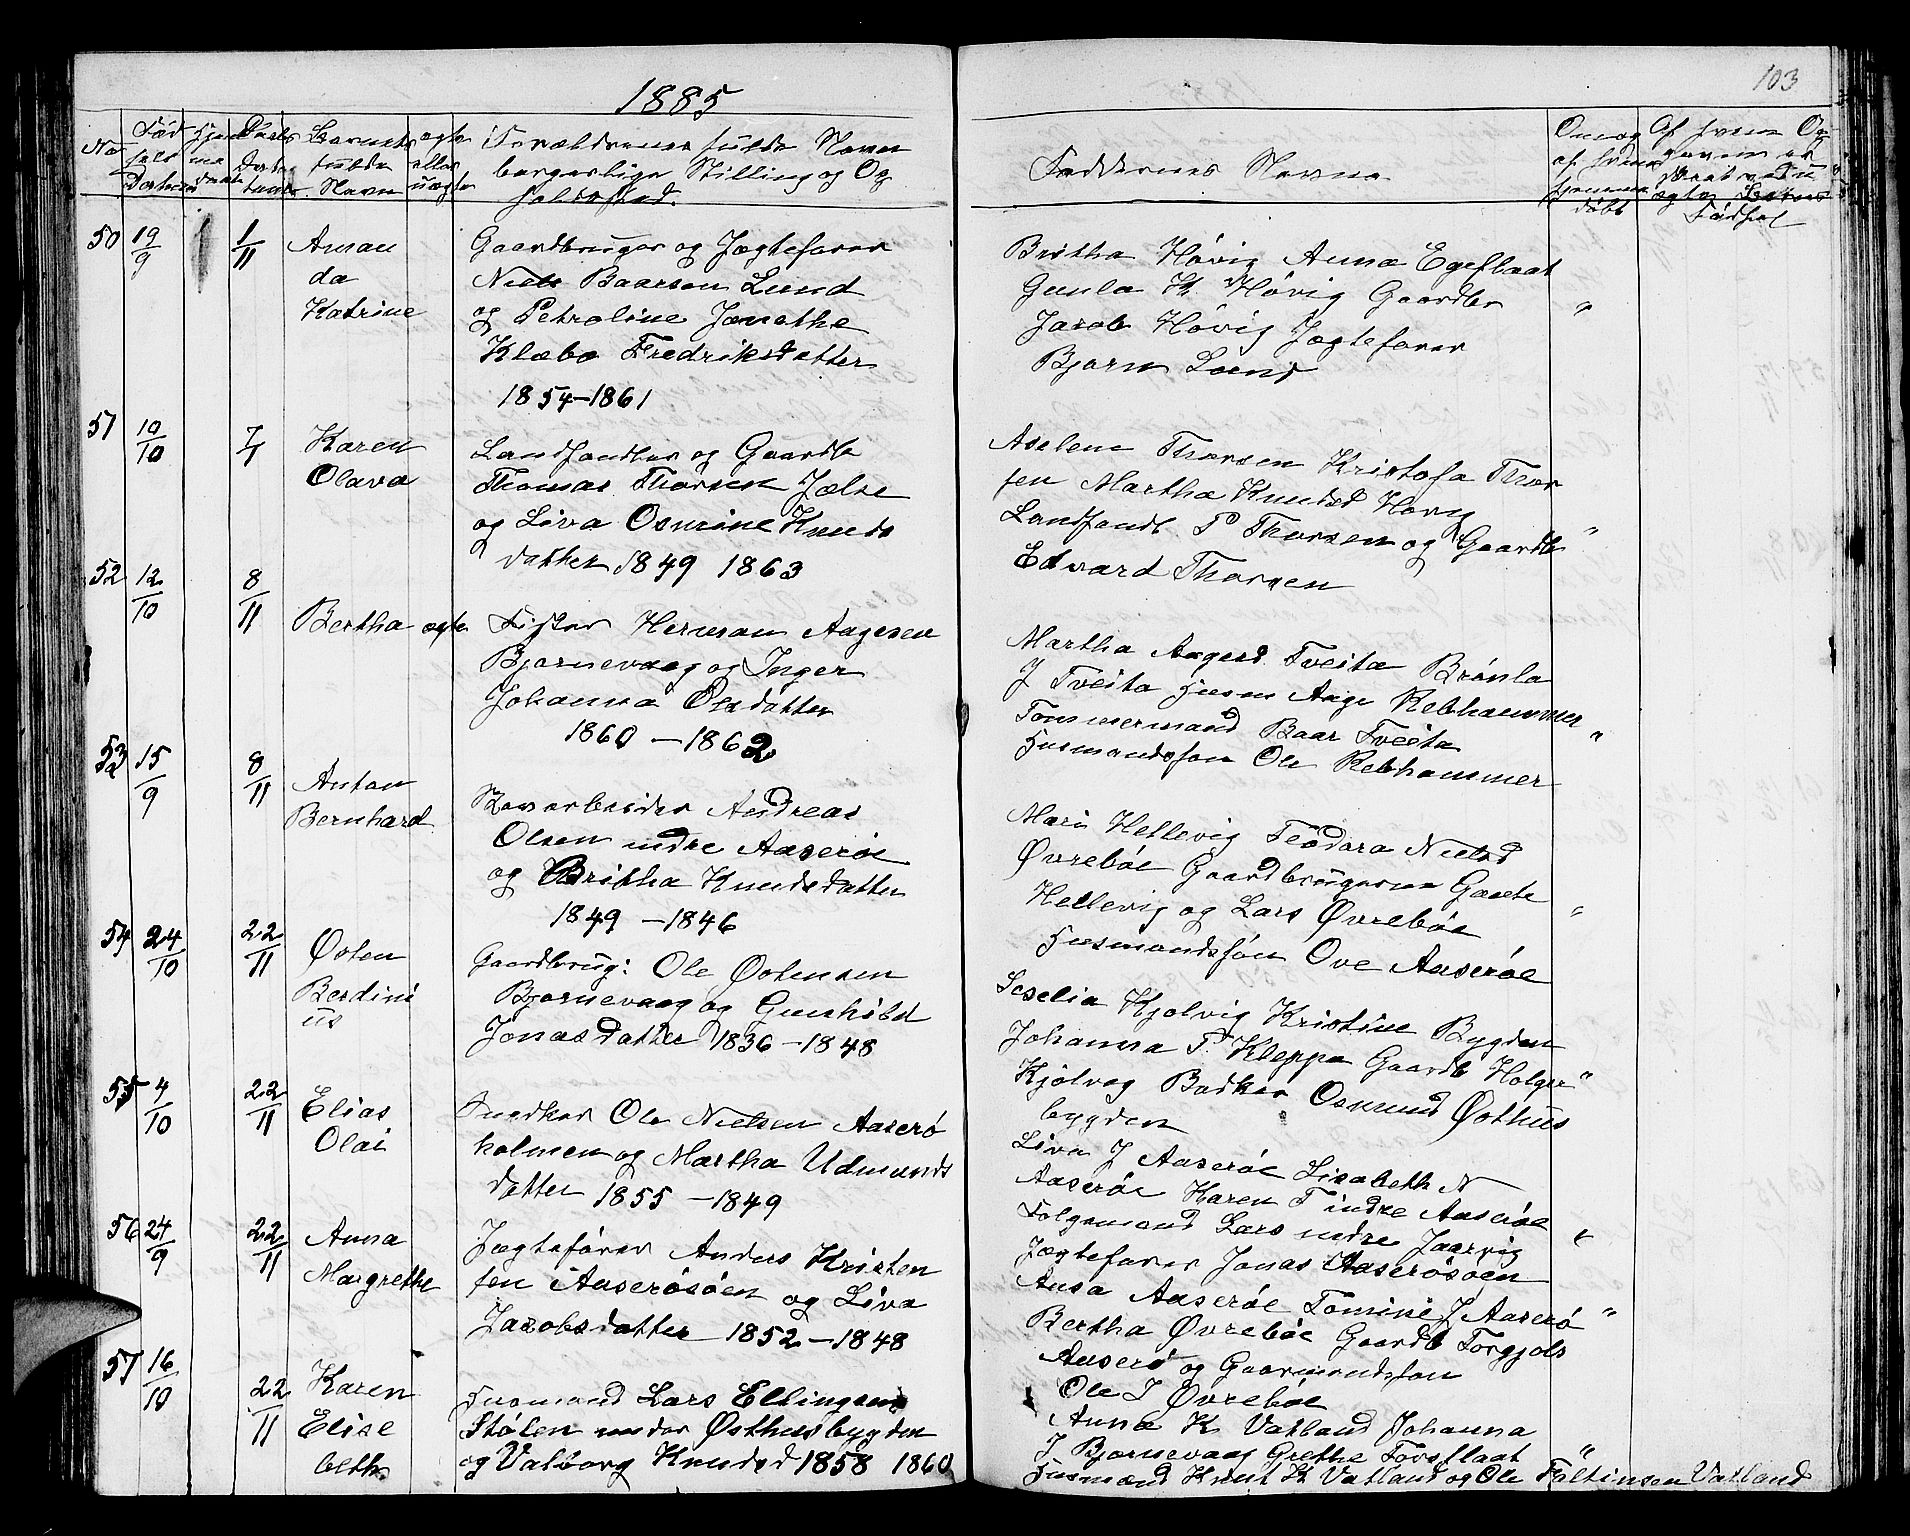 1885
103
No
Fød
sels
Datum
Hjem
me
døbt
Daabs
Barnets
fulde
Navn
ægte
eller
uægte
Forældrenes fulde Navn
borgerlige Stilling og Op
holdssted.
Faddernes Navne
Om og
af hvem
hjemme
døbt
50 19/9 1/11
Aman
da
Katrine
Gaardbruger og Jægtefører
Niels Baarsen Lund
og Petroline Jonethe
Klæbo Fredriksdatter
1854–1861
Britha Høvig Anna Egeflaat
Gunla K. Høvig Gaardbr
Jacob Høvig Jægtefører
Bjørn Lund
"
51 10/10
Karen
Olava
Landhandler og Gaardb
Thomas Thorsen Jælse
og Liva Osmine Knuds
datter 1849 1863
Aselene Thorsen Kristofa Thor
sen Martha Knudsd Høvig
Landhandl. P Thorsen og Gaardb
Edvard Thorsen
"
52 12/10 8/11
Bertha ægte
Fisker Herman Aagesen
Bjørnevaag og Inger
Johanna Olsdatter
1860 – 1862
Martha Aagesd. Tveita Brønla
J Tveita Husm Aage Rebhammer
Tømmermand Baar Tveita
Husmandssøn Ole Rebhammer
"
53 15/9 8/11
Anton
Bernhard
Andreas
Olsen indre Aaserøe
og Britha Knudsdatter
1849 – 1846
Mari Hellevig Teodora Nielsd
Øvrebøe Gaardbrugerne Gaute
Hellevig og Lars Øvrebøe
Husmandssøn Ove Aaserøe
"
54 24/10 22/11
Østen
Berdini
us
Gaardbrug: Ole Østensen
Bjørnevaag og Gunhild
Jonasdatter 1836 – 1848
Seselia Kjølvig Kristine Bygden
Johanna P. Kleppa Gaardb Holger
Kjølvag Bødker Osmund Østhus
bygden
"
55 4/10 22/11
Elias
Olai
Snedker Ole Nielsen Aaserø
holmen og Martha Udmunds
datter 1855 – 1849
Liva J Aaserøe Lisabeth N
Aaserøe Karen T indre Aaserøe
Følgemand Lars indre Jaarvig
Jægtefører Jonas Aaserøsøen
"
56 24/9 22/11
Anna
Margrethe
Jægtefører Anders Kristen
sen Aaserøsøen og Liva
Jacobsdatter 1852 – 1848
Ansa Aaserøe Tomine J Aaserø
Bertha Øvrebøe Gaardb Torgjols
Aaserø og Gaarmandssøn
Ole J Øvrebøe
"
57 16/10 22/11
Karen
Elise
beth
Husmand Lars Ellingsen
Stølen under Østhusbygden
og Valborg Knudsd 1858 1860
Anna K Vatland Johanna
J Bjørnevaag Grethe Forsflaat
Husmand Knut K Vatland og Ole Faltinsen Vatland
"